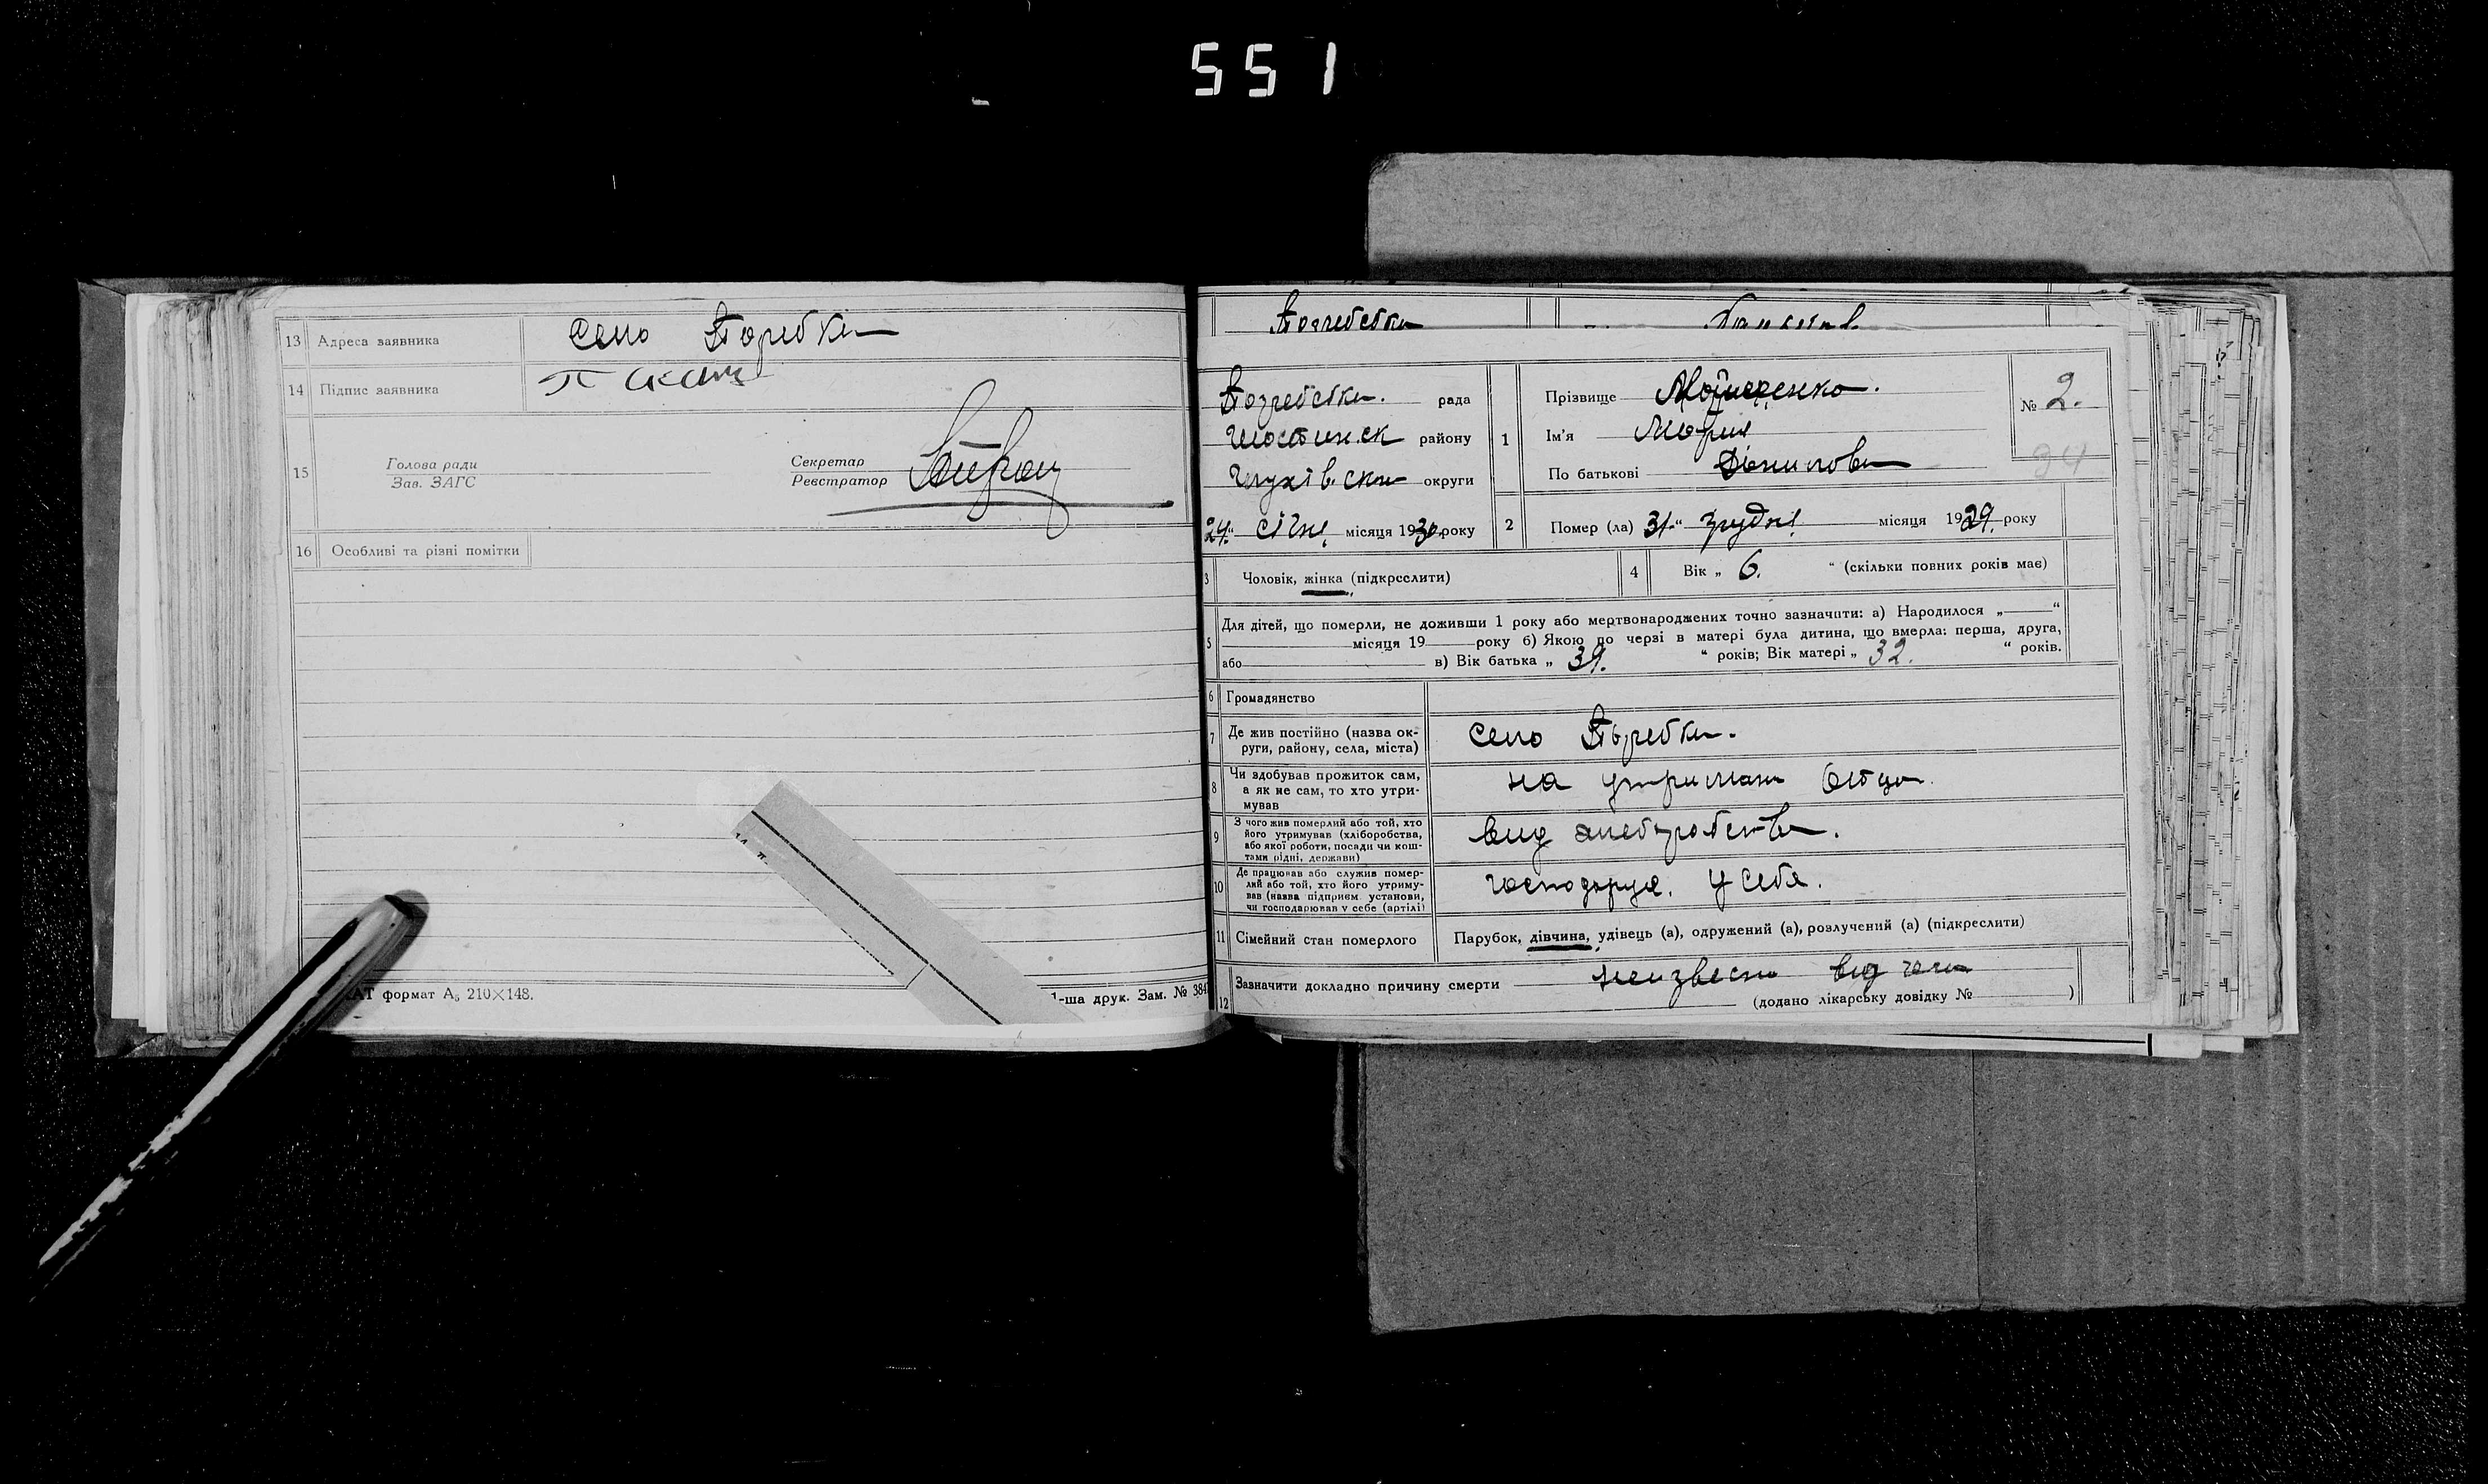 551
13 Адреса заявника село
14 Підпис заявника
15 Голова ради
Зав. ЗАГС
Секретар
Реєстратор
16 Особливі та різні помітки
АТ формат А₅ 210×148.
1-ша друк. Зам. № 384
рада
Шостинск району
Глухівски округи
24 січня місяця 1930 року
1 Прізвище
Ім'я Мария
По батькові Даниловн
№ 2.
94
2 Помер (ла) 31 " грудня місяця 1929 року
3 Чоловік, жінка (підкреслити)
4 Вік „ 6. “ (скільки повних років має)
5 Для дітей, що померли, не доживши 1 року або мертвонароджених точно зазначити: а) Народилося „ “
місяця 19 року б) Якою по черзі в матері була дитина, що вмерла: перша, друга,
або в) Вік батька „ 39. “ років; Вік матері „ 32. “ років.
6 Громадянство
7 Де жив постійно (назва ок-
руги, району, села, міста)
село
8 Чи здобував прожиток сам,
а як не сам, то хто утри-
мував
на утриман
9 З чого жив померлий або той, хто
його утримував (хліборобства,
або якої роботи, посади чи кош-
тами рідні, держави)
10 Де працював або служив помер-
лий або той, хто його утриму-
вав (назва підприєм. установи,
чи господарював у себе (артілі)
господарує. У себе.
11 Сімейний стан померлого
Парубок, дівчина, удівець (а), одружений (а), розлучений (а) (підкреслити)
12 Зазначити докладно причину смерти неизвесно від чего
(додано лікарську довідку № )